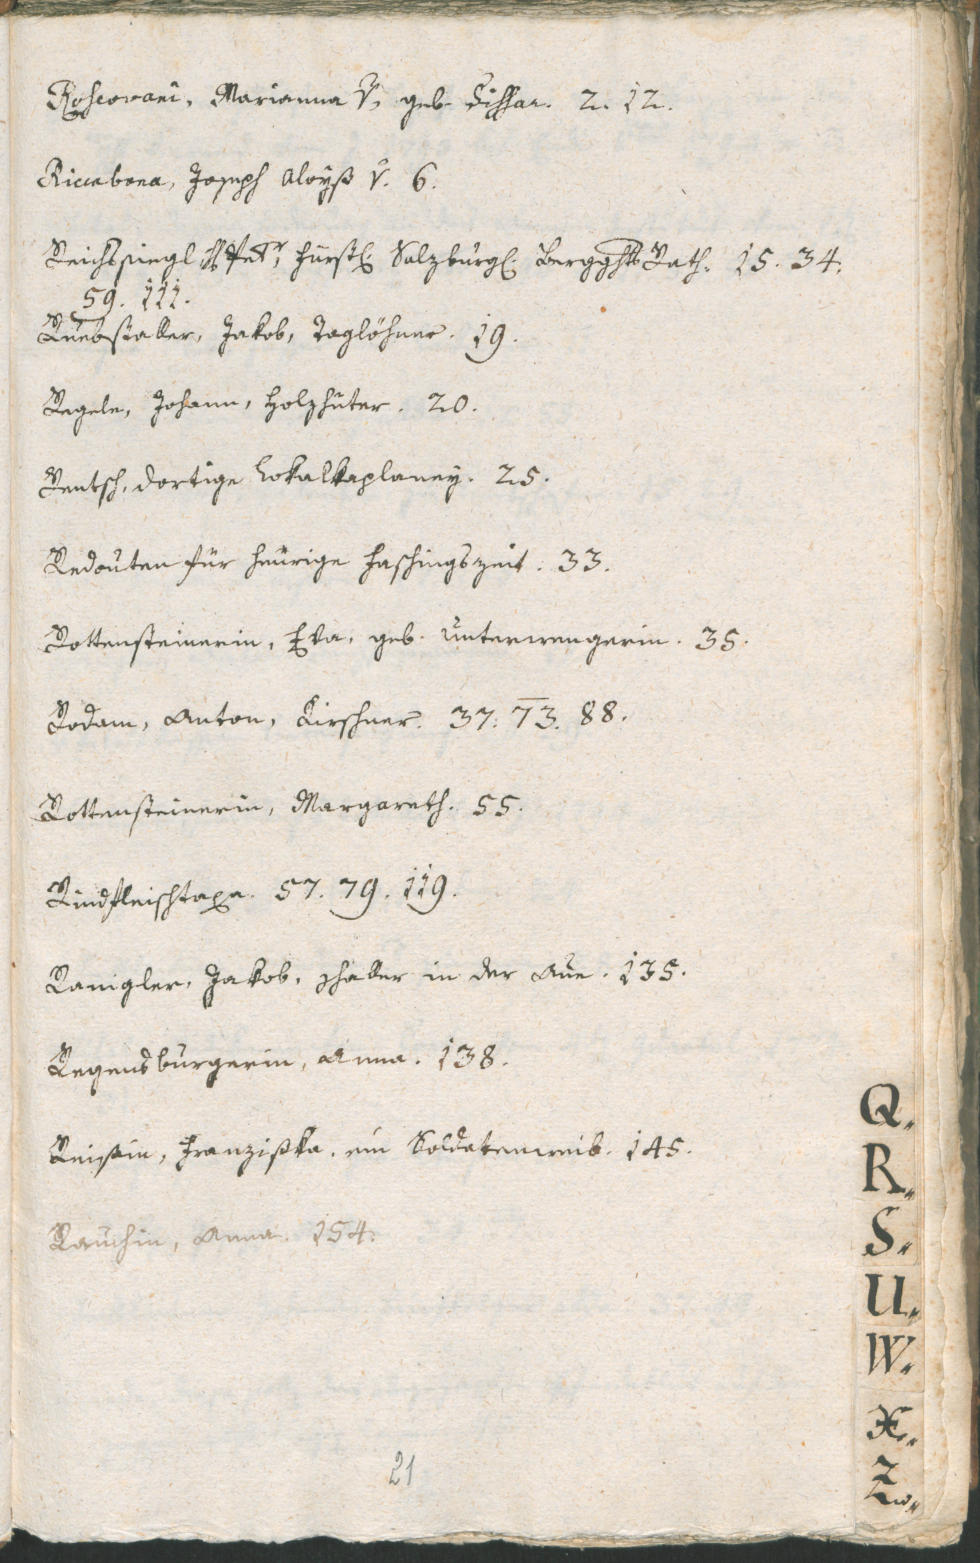 Roscovani, Marianna v. geb. Dissar. 2. 12.
Riccabona, Joseph Aloyß v. 6.
Reichssiegl Petr, fürstl. Salzburgl. Bergghts Rath. 15. 34.
59. 111.
Ruebstaller, Jakob, Taglöhner. 19.
Regele, Johann, Holzhüter. 20.
Rentsch, dortige Lokalkaplaney. 25.
Redouten für heurige Faschingszeit. 33.
Rottensteinerin, Eva, geb. Unterwengerin. 35.
Rodam, Anton, Kirschner. 37. 73. 88.
Rottensteinerin, Margareth. 55.
Rindfleischtaxa. 57. 79. 119.
Ranigler, Jakob, Zhaller in der Aue. 135.
Regensburgerin, Anna. 138.
Franziska, ein Soldatenweib. 145.
Rauchin, Anna. 154.
21
Q.
R.
S.
U.
W.
X.
Z.